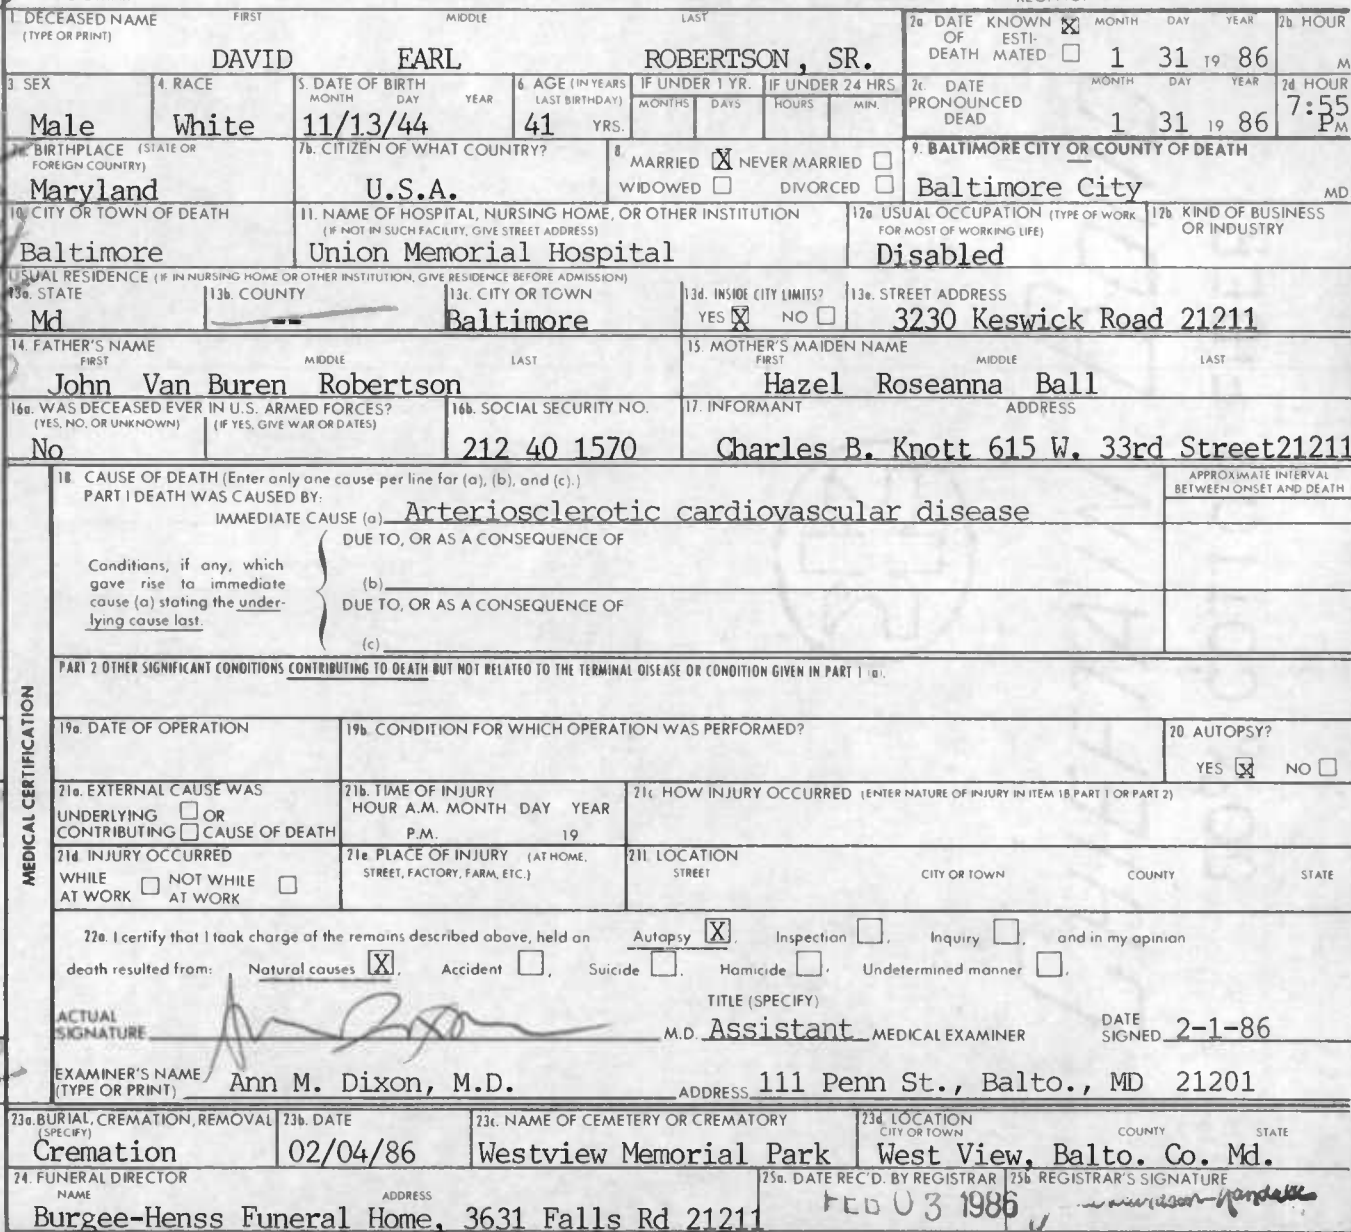 1 DECEASED NAME FIRST MIDDLE LAST
(TYPE OR PRINT)
DAVID EARL ROBERTSON, SR.
2a DATE KNOWN X MONTH DAY YEAR
OF ESTI-
DEATH MATED 1 31 19 86
2b HOUR
M
3 SEX
Male
4. RACE
White
5. DATE OF BIRTH
MONTH DAY YEAR
11/13/44
6 AGE (IN YEARS
LAST BIRTHDAY)
41 YRS.
IF UNDER 1 YR. IF UNDER 24 HRS
MONTHS DAYS HOURS MIN.
2c. DATE MONTH DAY YEAR
PRONOUNCED
DEAD 1 31 19 86
2d HOUR
7:55
PM
7a BIRTHPLACE (STATE OR
FOREIGN COUNTRY)
Maryland
7b. CITIZEN OF WHAT COUNTRY?
U.S.A.
8
MARRIED X NEVER MARRIED
WIDOWED DIVORCED
9. BALTIMORE CITY OR COUNTY OF DEATH
Baltimore City MD
10. CITY OR TOWN OF DEATH
Baltimore
11. NAME OF HOSPITAL, NURSING HOME, OR OTHER INSTITUTION
(IF NOT IN SUCH FACILITY, GIVE STREET ADDRESS)
Union Memorial Hospital
12a USUAL OCCUPATION (TYPE OF WORK
FOR MOST OF WORKING LIFE)
Disabled
12b KIND OF BUSINESS
OR INDUSTRY
USUAL RESIDENCE (IF IN NURSING HOME OR OTHER INSTITUTION, GIVE RESIDENCE BEFORE ADMISSION)
13a. STATE
Md
13b. COUNTY
--
13c. CITY OR TOWN
Baltimore
13d. INSIDE CITY LIMITS?
YES X NO
13e. STREET ADDRESS
3230 Keswick Road 21211
14. FATHER'S NAME
FIRST MIDDLE LAST
John Van Buren Robertson
15. MOTHER'S MAIDEN NAME
FIRST MIDDLE LAST
Hazel Roseanna Ball
16a. WAS DECEASED EVER IN U.S. ARMED FORCES?
(YES, NO, OR UNKNOWN) (IF YES, GIVE WAR OR DATES)
No
16b. SOCIAL SECURITY NO.
212 40 1570
17. INFORMANT ADDRESS
Charles B. Knott 615 W. 33rd Street21211
MEDICAL CERTIFICATION
18 CAUSE OF DEATH (Enter only one cause per line for (a), (b), and (c).)
PART I DEATH WAS CAUSED BY:
APPROXIMATE INTERVAL
BETWEEN ONSET AND DEATH
IMMEDIATE CAUSE (a) Arteriosclerotic cardiovascular disease
DUE TO, OR AS A CONSEQUENCE OF
Conditions, if any, which
gave rise to immediate
cause (a) stating the under-
lying cause last.
(b)
DUE TO, OR AS A CONSEQUENCE OF
(c)
PART 2 OTHER SIGNIFICANT CONDITIONS CONTRIBUTING TO DEATH BUT NOT RELATED TO THE TERMINAL DISEASE OR CONDITION GIVEN IN PART 1 (a).
19a. DATE OF OPERATION
19b. CONDITION FOR WHICH OPERATION WAS PERFORMED?
20 AUTOPSY?
YES X NO
21a. EXTERNAL CAUSE WAS
UNDERLYING OR
CONTRIBUTING CAUSE OF DEATH
21b. TIME OF INJURY
HOUR A.M. MONTH DAY YEAR
P.M. 19
21c HOW INJURY OCCURRED (ENTER NATURE OF INJURY IN ITEM 18 PART 1 OR PART 2)
21d INJURY OCCURRED
WHILE NOT WHILE
AT WORK AT WORK
21e PLACE OF INJURY (AT HOME,
STREET, FACTORY, FARM, ETC.)
21f. LOCATION
STREET CITY OR TOWN COUNTY STATE
22a. I certify that I took charge of the remains described above, held an Autopsy X, Inspection , Inquiry , and in my opinion
death resulted from: Natural causes X, Accident , Suicide , Homicide , Undetermined manner .
ACTUAL
SIGNATURE
M.D.
TITLE (SPECIFY)
Assistant MEDICAL EXAMINER
DATE
SIGNED 2-1-86
EXAMINER'S NAME
(TYPE OR PRINT) Ann M. Dixon, M.D. ADDRESS 111 Penn St., Balto., MD 21201
23a. BURIAL, CREMATION, REMOVAL
(SPECIFY)
Cremation
23b. DATE
02/04/86
23c. NAME OF CEMETERY OR CREMATORY
Westview Memorial Park
23d. LOCATION
CITY OR TOWN COUNTY STATE
West View, Balto. Co. Md.
24. FUNERAL DIRECTOR
NAME ADDRESS
Burgee-Henss Funeral Home, 3631 Falls Rd 21211
25a. DATE REC'D. BY REGISTRAR
FEB 03 1986
25b REGISTRAR'S SIGNATURE